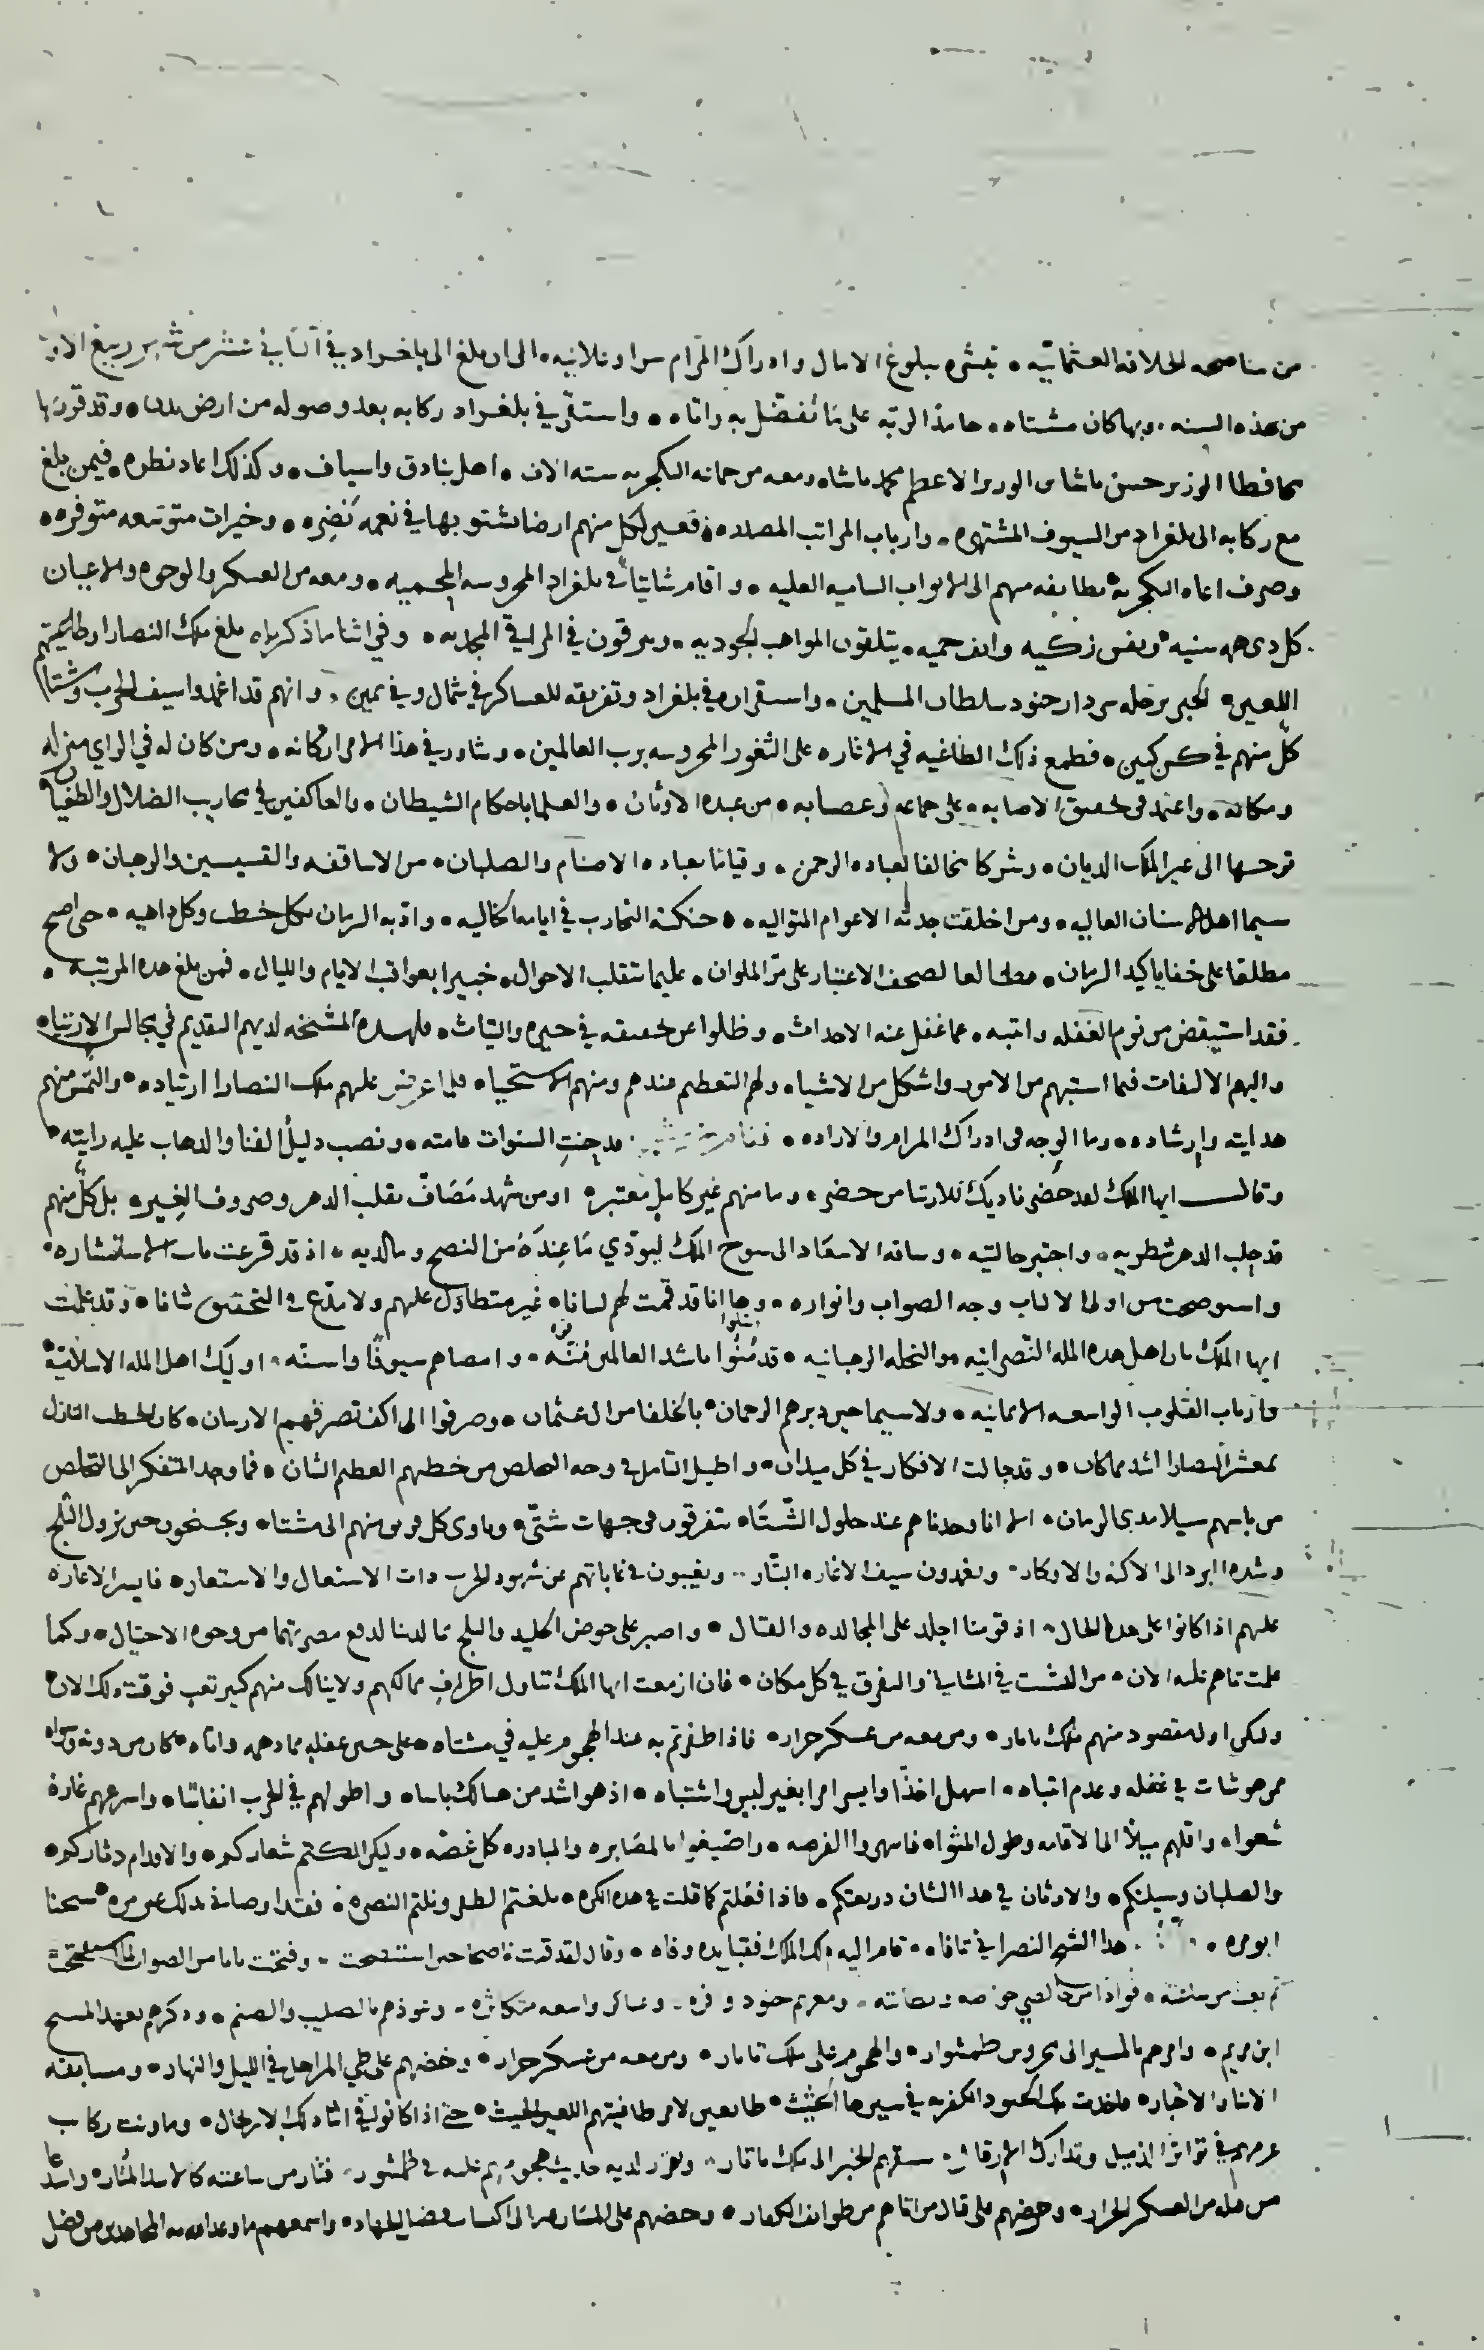 من مناصحه الخلافه العثمانيّه • تبشره ببلوغ الامال وادراك المرام سرا وعلانيه • الى ان بلغ الى بلغراد في من شهر ربيع الاول
من هذه السنه • وبها كان مشتاه • حامدًا لربّه على ما تفضّل به واتاه • واستقرّ في بلغراد ركابه بعد وصوله من ارض • وقد قرن بها
محافظا الوزير حسن باشا الوزير الاعظم محمد باشا ومعه من حماته الينكجريه سته الاف • اهل بنادق واسياف • وكذلك اعاد نظره • فيمن بلغ
مع ركابه الى بلغراد من السيوف المشتهره • وارباب المراتب المصدره • فعين لكل منهم ارضا يشتو بها في نعمه نَضِره • وخيرات متوسعه متوفره •
وصرف اغاه الينكجريه بطايفه منهم الى الابواب الساميه العليه • واقام شاتيًا في بلغراد المحروسه المحميه • ومعه من العسكر والوجوه والاعيان
كل ذي همه سنيه ونفس زكيه وانف حميه • يتلقون المواهب الجوديه • ويرقون في المراقي المجديه • وفي اثنا ما ذكرناه بلغ ملك النصارا وطاغيتهم
اللعين • الخبر برحله سردار جنود سلطان المسلمين • واستقراره في بلغراد وتفريقه للعساكر في شمال وفي يمين • وانهم قد اغمدوا سيف الحرب وشتا
كلّ منهم في كن كنين • فطمع ذلك الطاغيه في الاغاره على الثغور المحروسه برب العالمين • وشاور في هذا الامر اركانه • ومن كان له في الراي منزله
ومكانه • واعتمد في تحقيق الاصابه • على جماعه وعصابه • من عبده الاوثان • والعلما باحكام الشيطان • والعاكفين في محاريب الضلال والطغيان
توجها الى غير الملك الديان • وشركا مخالفا لعباده الرحمن • وقياما بعباده الاصنام والصلبان • من الاساقفه والقسيسين والرهبان • ولا
سيما اهل الاسنان العاليه • ومن اخلقت جدته الاعوام المتواليه • وحنكته التجارب في ايامه الخاليه • وادبه الزمان بكل خطب وكل داهيه • حتى اصبح
مطلعا على خفايا كيد الزمان • مطالعا لصحف الاعتبار على مرّ الملوان • عليما بتقلب الاحوال • خبيرا بعواقب الايام والليال • فمن بلغ هذه المرتبه •
فقد استيقض من نوم الغفله وانتبه • عما غفل عنه الاحداث • وظلوا عن تحقيقه في حيره والتياث • فلهذه المشيخه لديهم التقديم في مجالس الارتياه
واليهم الالتفات فيما استبهم من الامور واشكل من الاشيا • ولهم التعظيم عندهم ومنهم الاستحيا • فلما عرض عليهم ملك النصارا ارتياده • والتمس منهم
هدايته وارشاده • وما الوجه في ادراك المرام والاراده • فقام قد حنت السنوات قامته • ونصب دليل الفنا والذهاب عليه رايته •
وقال ايها الملك لقد حضر ناديك للارتيا من حضر • وما منهم غير كامل معتبر • ومن شهد مَصَافّ تقلب الدهر وصروف الغِير • بل كلٌّ منهم
قد حلب الدهر شطريه • واختبر حالتيه • وساقه الاسعاد الى سوح الملك ليؤدّي مَا عِندَهُ من النصح وما لديه • اذ قد قرعت باب الاستشاره •
واستوضحت من اولي الالباب وجه الصواب وانواره • وها انا قد قمت لهم لسانا • غير متطاول عليهم ولا مدّع في التحقيق شانا • وقد علمت
ايها الملك بان اهل هذه المله النّصرانيه • والنحله الرهبانيه • قد مُنُوا باشد العالمين مُنّه • وامضاهم سيوفًا واسنّه • اوليك اهل المله الاسلاميّة •
وارباب القلوب الواسعه الايمانيه • ولا سيما حين دبرهم الرحمان • بالخلفا من ال عثمان • وصرفوا الى اكف تصرفهم الارسان • كان الخطب النازل
بمعشر النصارا اشد مما كان • وقد جالت الافكار في كل ميدان • واطيل التامل في وجه التخلص من خطبهم العظيم الشان • فما وجد المتفكر الى التخلص
من باسهم سبيلا مدى الزمان • الا انا وجدناهم عند حلول الشّتَاء يتفرقون في جهات شتّى • وياوى كل فريق منهم الى مشتاه • ويجنحون حين نزول الثلج
وشده البرد الى الاكنه والاوكار • ويغمدون سيف الاغاره البتّار • ويغيبون في غاباتهم عن شهود الحرب ذات الاشتعال والاستعار • فايسر الاغاره
عليهم اذا كانوا على هذا الحال • اذ قومنا اجلد على المجالده والقتال • واصبر على خوض الجليد والثلج بما لدينا لدفع مضرتهما من وجوه الاحتيال • وكما
علمت ما هم عليه الان • من التشتت في المشاتي والتفرق في كل مكان • فان ازمعت ايها الملك تناول اطراف ممالكهم ولا ينالك منهم كبير تعب فوقت ذلك الان
وليكن اول مقصود منهم ملك تاتار • ومن معه من عسكر جرار • فاذا ظفرتم به عند الهجوم عليه في مشتاه • على حين غفله مما دهمه واتاه • كان من دونه وسواه
ممن هو شات في غفله وعدم انتباه • اسهل اخذًا وايسر امرا بغير لبس واشتباه • اذ هو اشد من هنالك باسا • واطولهم في الحرب انفاسا • واسرعهم غارة
شعوا • واقلهم ميلاً الى الاقامه وطول المثوا • فانتهزوا الفرصه • واضيفوا بالمصابره والمبادره كل غصّه • وليكن التكتم شعاركم • والاقدام دثاركم •
والصلبان وسيلتكم • والاوثان في هذا الشان ذريعتكم • فاذا فعلتم كما قلت في هذه الكره • بلغتم الظفر ونلتم النصره • فعند ارصافى ذلك
ابو مره • هذا الشيخ النصراني فاه • قام اليه ذلك الملك فقبل يده وفاه • وقال لقد قمت ناصحا حين استنصحت • وفتحت بابا من الصواب
ثم بعث من ساعته • قوادا خاصه وبطانته • ومعهم جنود وافره • وعساكر واسعه متكاثره • وعوذهم بالصليب والصنم • وذكرهم بعهد المسيح
ابن مريم • وامرهم بالمسير الى محروس طمشوار • والهجوم على ملك تاتار • ومن معه من عسكر جرار • وحضهم على طي المراحل في الليل والنهار • ومسابقه
الاثار والاخبار • فاخذت تلك الجنود الكفريه في سيرها الحثيث • طايعين لامر طاغيتهم اللعين الخبيث • حتى اذا كانوا في اثنا ذلك الارتحال • وما ونت ركاب
عزمهم في تواتر الذميل وتدارك الارقال • سبقهم الخبر الى ملك تاتار • وتقرر لديه حديث هجومهم عليه في طمشوار • فثار من ساعته كالاسد المُثار • واستدعا
من قبله من العسكر الجرار • وحرضهم على قتال من اتاهم من طوايف الكفار • وحضهم على المسارعه الى اكتساب فضايل الجهاد • واسمعهم ما وعد الله به المجاهدين من فضل